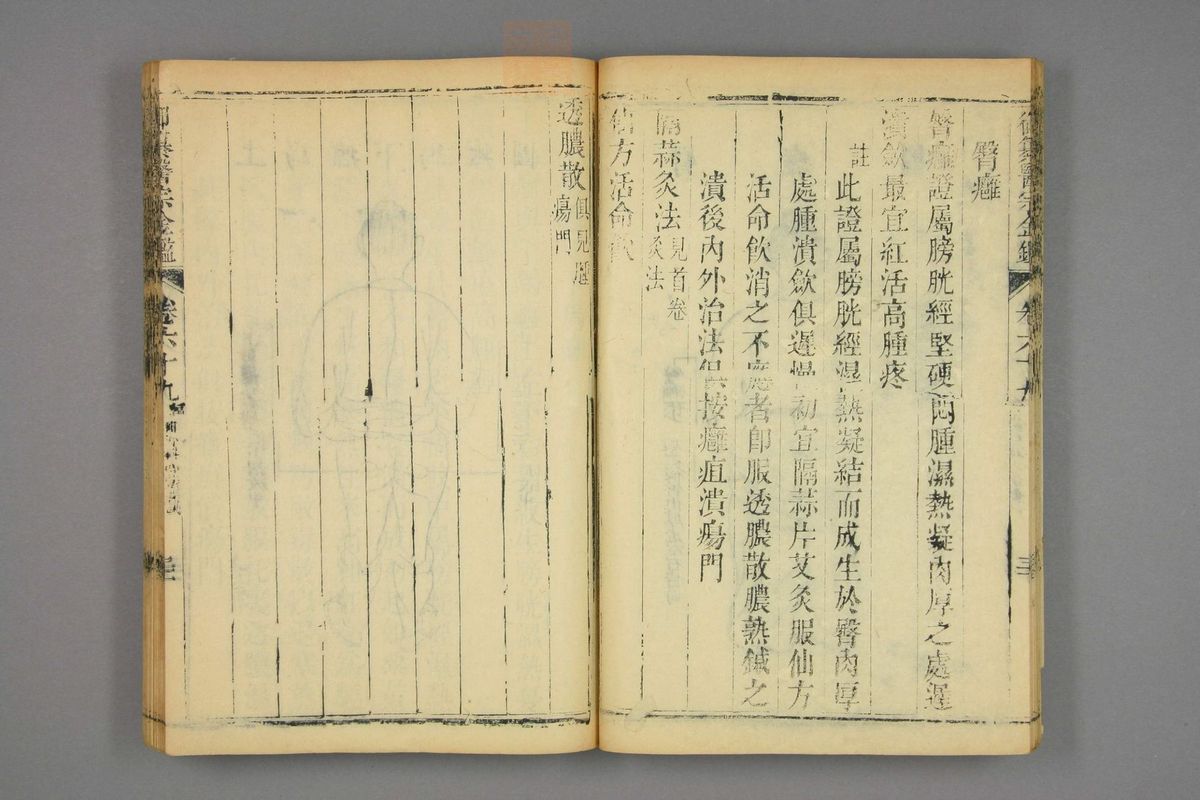 臀癰
臀癰證屬膀胱經堅硬悶腫濕熱凝肉厚之處遲
潰斂最宜紅活高腫疼
註
此證屬膀胱經濕熱凝結而成生於臀肉厚
處腫潰斂俱遲慢初宜隔蒜片艾灸服仙方
活命飲消之不應者即服透膿散膿熟鍼之
潰後內外治法俱按癰疽潰瘍門
隔蒜灸法見首卷灸法
仙方活命飲
透膿散俱見腫瘍門
御纂醫宗金鑑
卷六十九
御纂醫宗金鑑
卷六十九